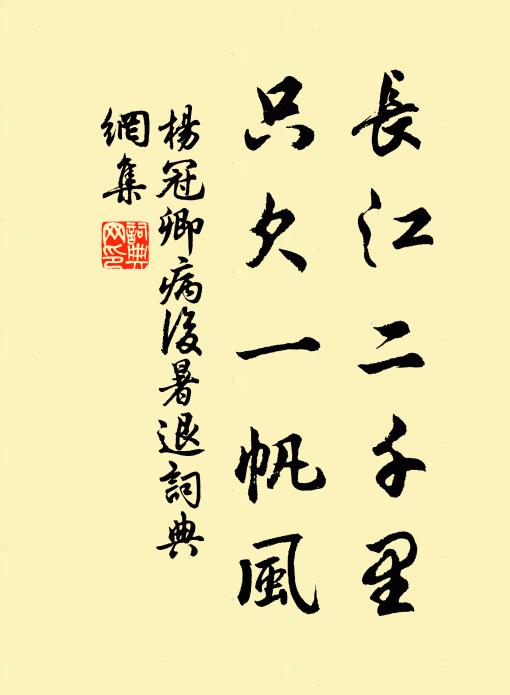 長江二千里
只欠一帆風
楊冠卿病後暑退詞典
網集
詞典網印